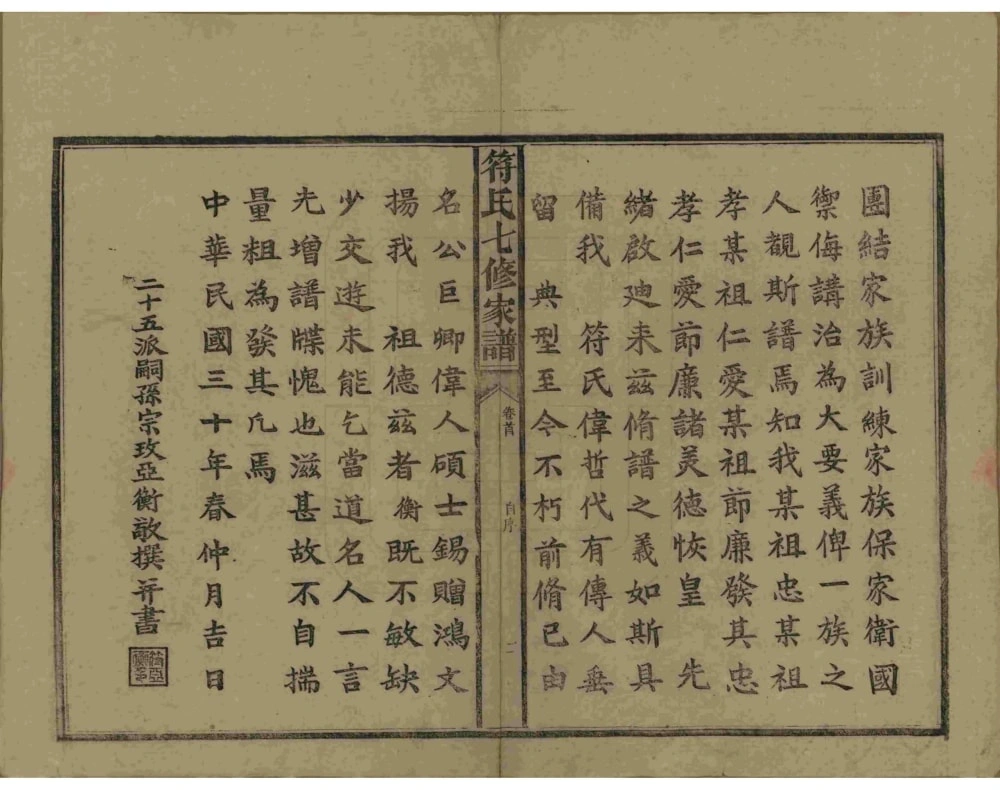 團結家族訓練家族保家衛國
禦侮講治為大要義俾一族之
人觀斯譜焉知我某祖忠某祖
孝某祖仁愛某祖節廉發其忠
孝仁愛節廉諸美德恢皇　先
緒啟廸来茲脩譜之義如斯具
備我　符氏偉哲代有傳人垂
留　典型至今不朽前脩已由
符氏七修家譜
卷首
自序
二
名公巨卿偉人碩士錫贈鴻文
揚我　祖德茲者衡既不敏缺
少交遊未能乞當道名人一言
光增譜牒愧也滋甚故不自揣
量粗為發其凡焉
中華民國三十年春仲月吉日
二十五派嗣孫宗玫亞衡敬撰并書